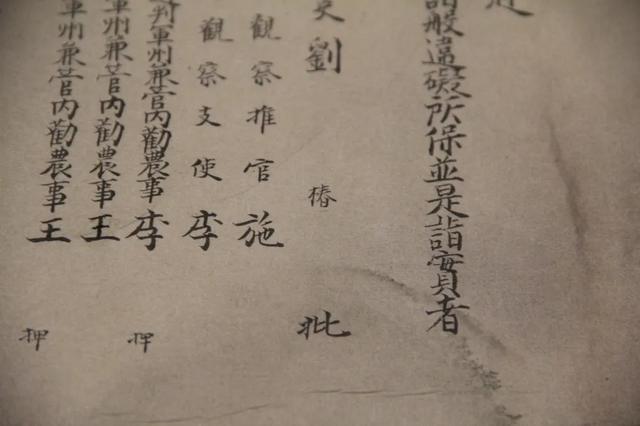 諸般違礙所保並是詣實者
吏劉 椿 批
觀察推官施
觀察支使李
判軍州兼管內勸農事李 押
軍州兼管內勸農事王
軍州兼管內勸農事王 押